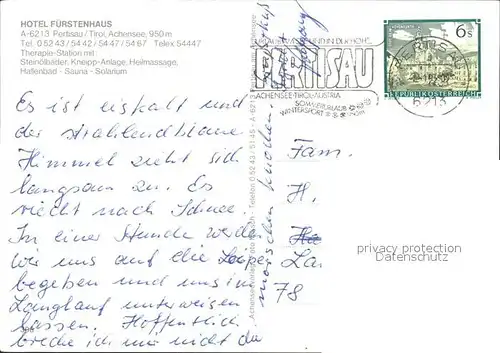 HOTEL FÜRSTENHAUS
A-6213 Pertisau/Tirol, Achensee, 950 m
Tel. 0 52 43 / 54 42 / 54 47 / 54 67 Telex 54447
Therapie-Station mit:
Steinölbäder, Kneipp-Anlage, Heilmassage,
Hallenbad - Sauna - Solarium
Es ist kalt und
das strahlend blaue
Himmel zieht sich
langsam zu. Es
riecht nach Schnee.
In einer Stunde werden
wir uns auf die Loipe
begeben und uns im
Langlauf unterweisen
lassen. Hoffentlich
breche ich mir nicht da
morschen Knochen
PERTISAU
ACHENSEE-TIROL-AUSTRIA
SOMMERURLAUB
WINTERSPORT
6 S
REPUBLIK ÖSTERREICH
PERTISAU
6213
Fam.
H.
La
78
privacy protection
Datenschutz